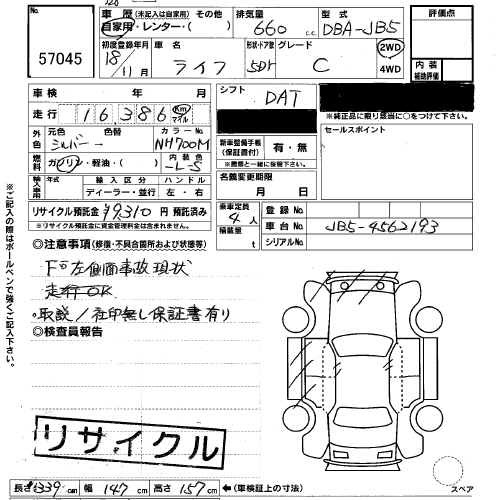 No. 57045
車歴 (未記入は自家用) その他
自家用・レンター・( )
排気量 660 c.c.
型式 DBA-JB5
初度登録年月 18/11月
車名 ライフ
形状・ドア数 5Dr
グレード C
2WD
4WD
評価点
内装
補助評価
車検 年 月
走行 16,386 Km マイル
シフト DAT
※純正品に限り該当に○をつけて下さい。
外色 元色 シルバー 色替
カラーNo. NH700M
燃料 ガソリン・軽油・( )
内装色
新車整備手帳(保証書付) 有・無
※書類と一緒に後送して下さい。
セールスポイント
輸入車用 年式 輸入区分 ディーラー・並行
ハンドル 左・右
名義変更期限 月 日
リサイクル預託金 ¥9,310 円 預託済み
※リサイクル預託金に資金管理料金は含まれません。
乗車定員 4人
積載量 t
登録No.
車台No. JB5-4562193
シリアルNo.
◎注意事項(修復・不具合箇所および状態等)
下回左側面事故現状
走行OK
取説/社印無し保証書有り
◎検査員報告
リサイクル
長さ 339 cm 幅 147 cm 高さ 157 cm ←(車検証上の寸法)
スペア
※ご記入の際はボールペンで強くご記入下さい。